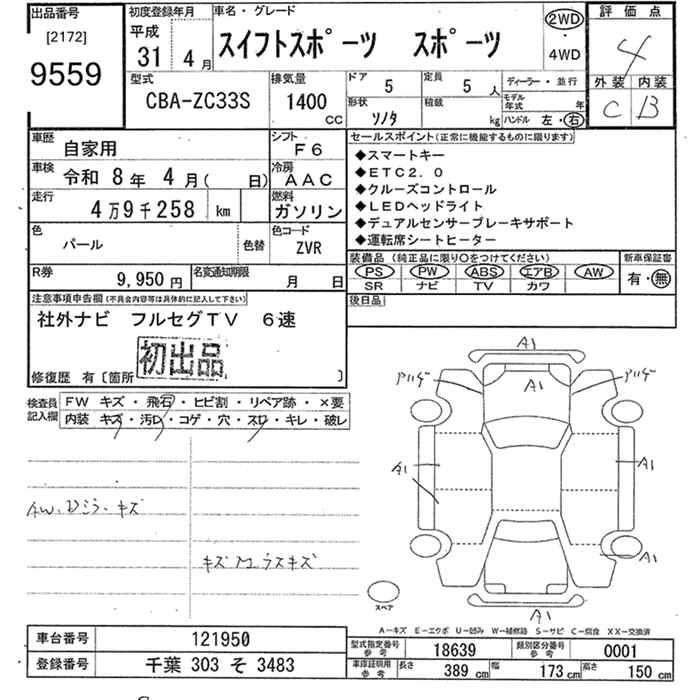 出品番号 初度登録年月 車名・グレード 評価点
[2172] 平成 2WD
9559 31 4月 スイフトスポーツ スポーツ 4WD 4
型式 排気量 ドア 5 定員 5人 ディーラー・並行 外装 内装
CBA-ZC33S 1400cc 形状 ソノタ 積載 kg モデル年式 年 ハンドル 左・右 C B
車歴 自家用 シフト F6 セールスポイント(正常に機能するものに限ります)
車検 令和 8年 4月( 日) 冷房 AAC ◆スマートキー
◆ETC2.0
走行 4万9千258 km 燃料 ガソリン ◆クルーズコントロール
◆LEDヘッドライト
色 パール 色替 色コード ZVR ◆デュアルセンサーブレーキサポート
◆運転席シートヒーター
R券 9,950円 名変通知期限 月 日 装備品(純正品に限り○をつけてください) 新車保証書
PS PW ABS エアB AW 有・無
SR ナビ TV カワ
注意事項申告欄(不具合内容等は具体的に記入して下さい) 後日品
社外ナビ フルセグTV 6速
初出品
修復歴 有〔箇所 〕
検査員記入欄 FW キズ・飛石・ヒビ割・リペア跡・×要
内装 キズ・汚レ・コゲ・穴・スレ・キレ・破レ
A1
A1
アルゲ アルゲ
A1 A1
AW、Dミラーキズ
キズ
A1
スペア
A1
A-キズ E-エクボ U-凹み W-補修跡 S-サビ C-腐食 XX-交換済
車台番号 121950 型式指定番号 参考 18639 類別区分番号 参考 0001
登録番号 千葉 303 そ 3483 車庫証明用 参考 長さ 389cm 幅 173cm 高さ 150cm